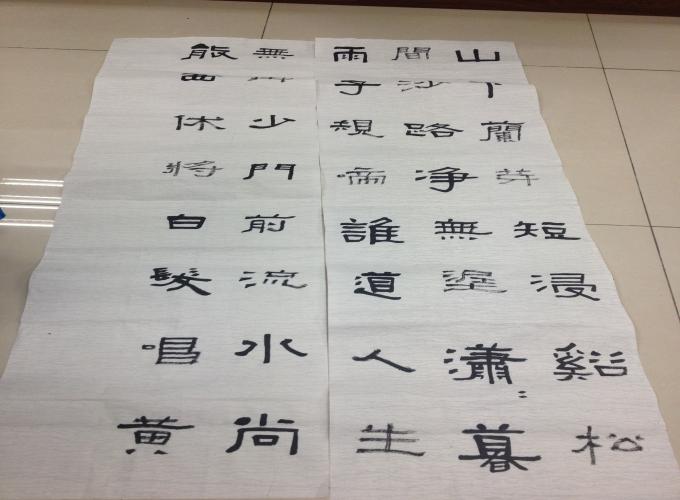 山下蘭芽短浸谿松
間沙路净無埿瀟〻暮
雨子規啼誰道人生
無少門前流水尚
能西休將白髮唱黄